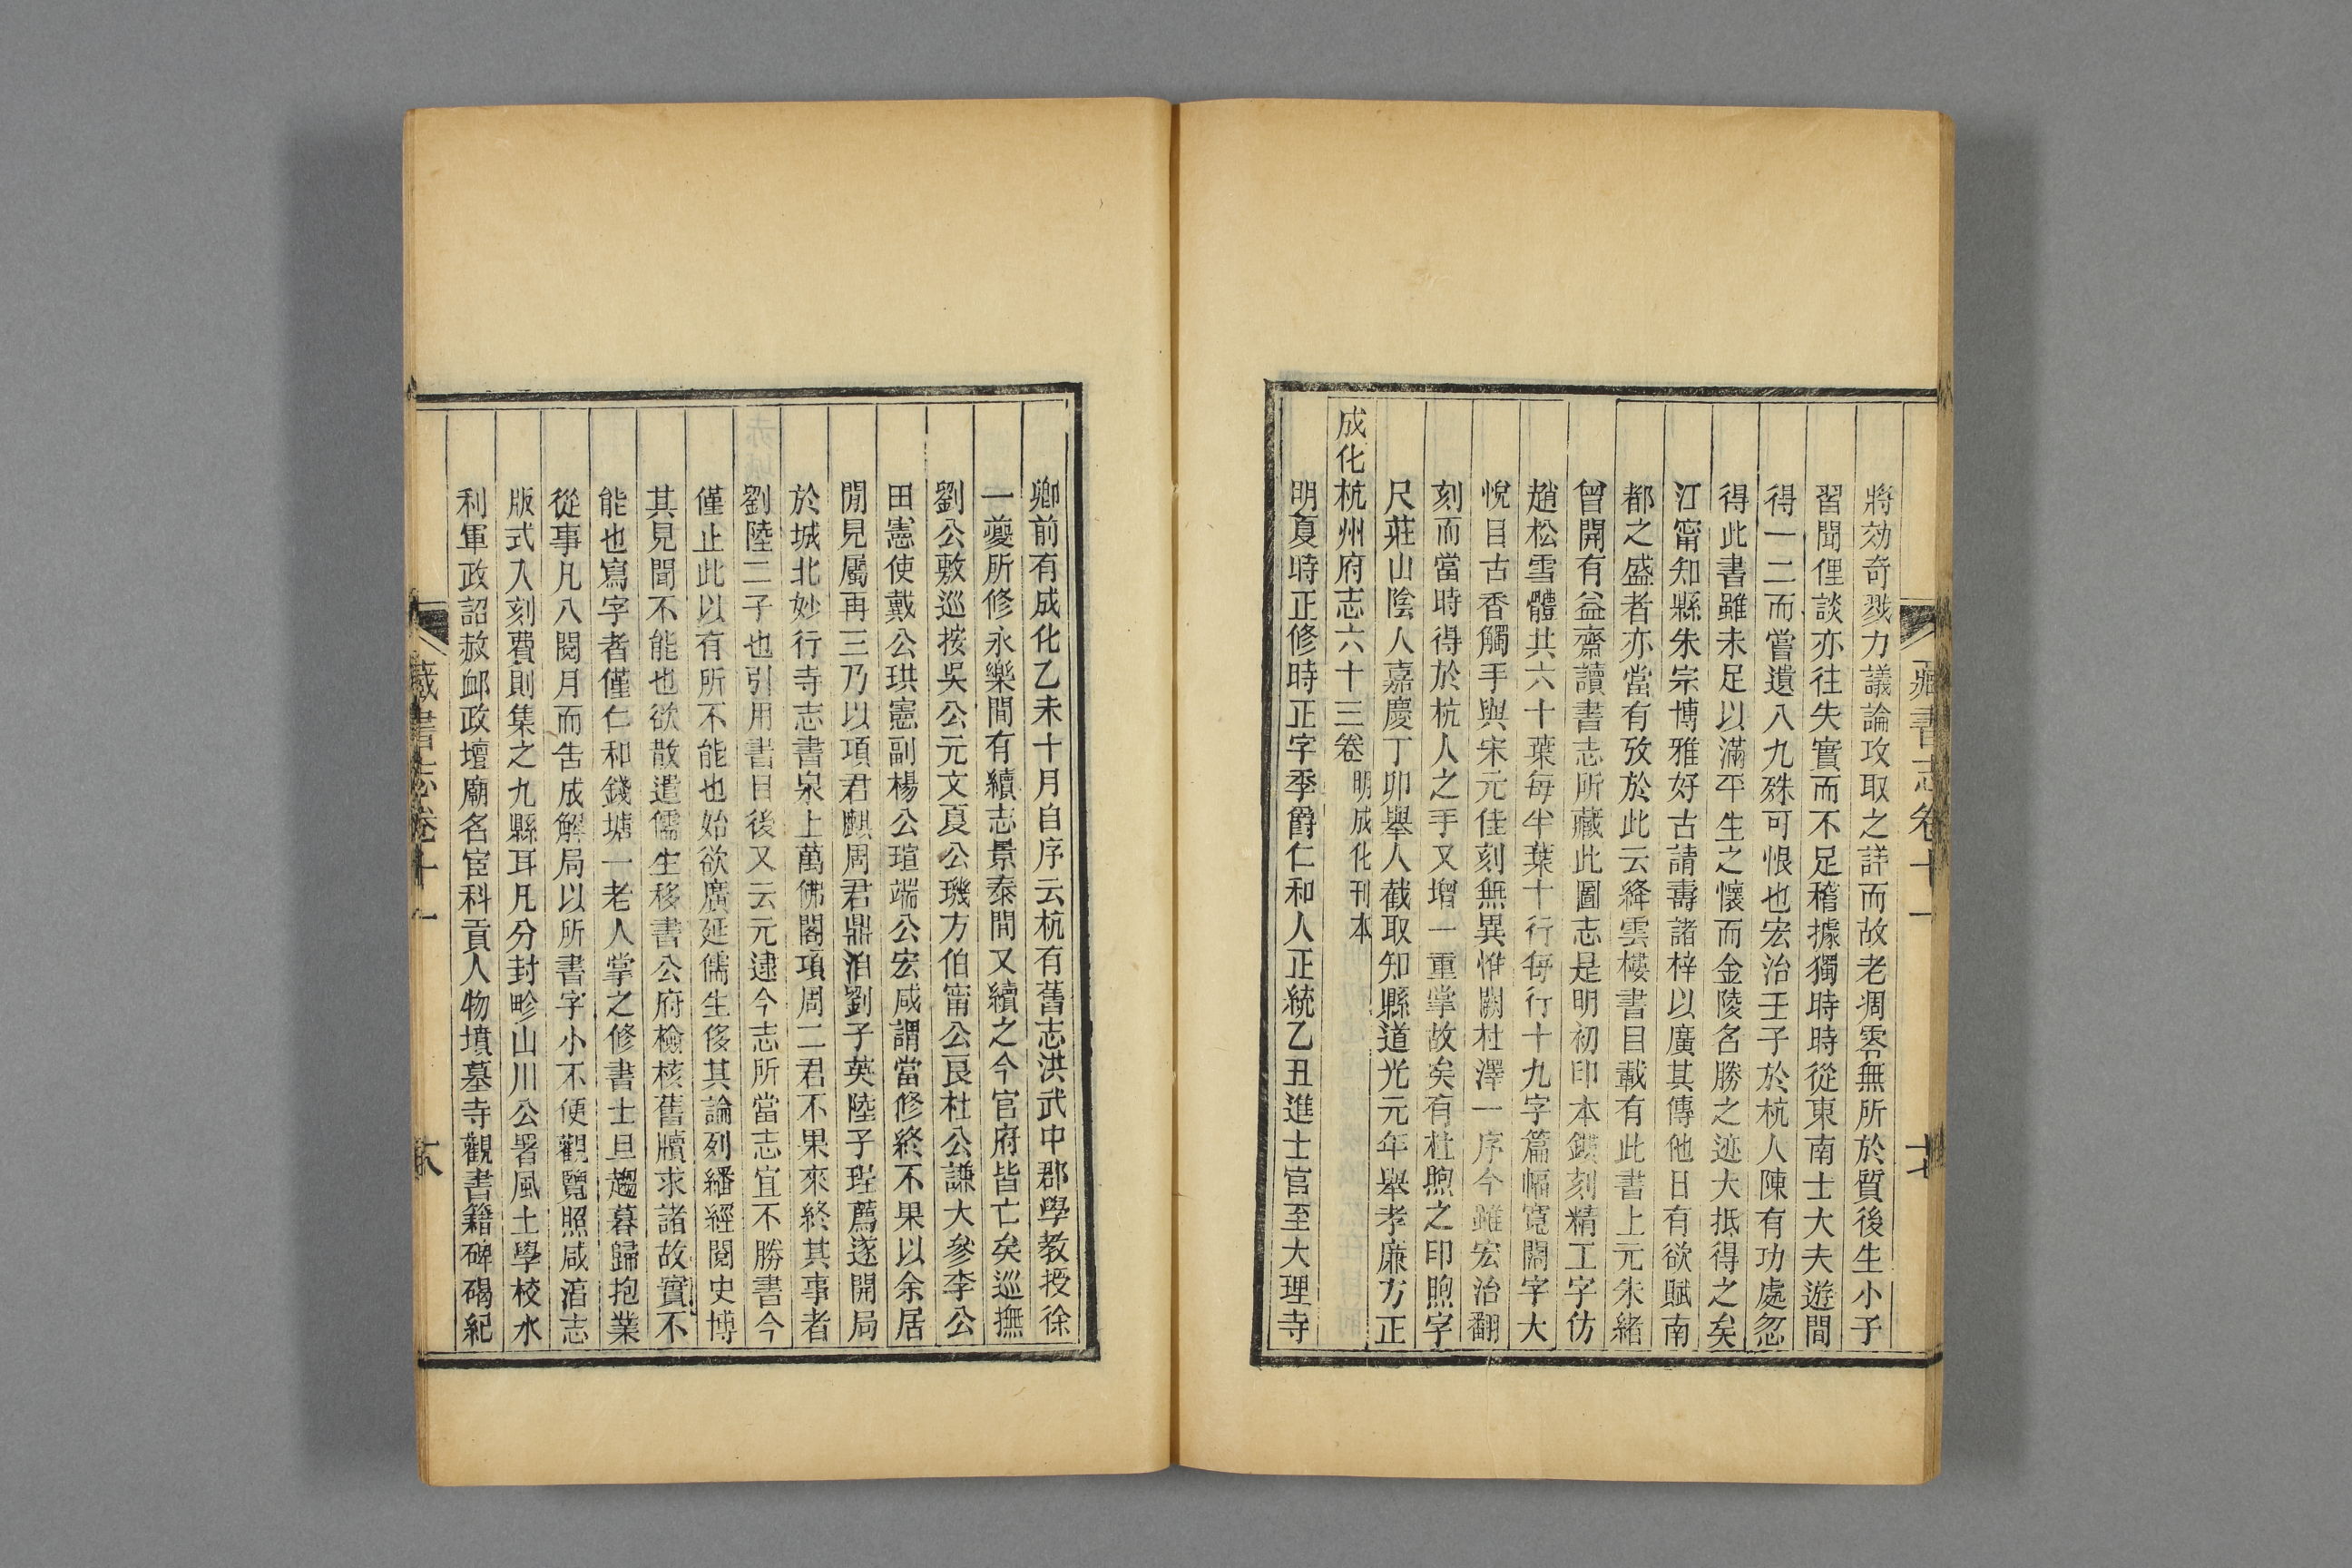 藏書志卷十一
將効奇戮力議論攻取之詳而故老凋零無所於質後生小子
習聞俚談亦往失實而不足稽據獨時時從東南士大夫遊間
得一二而嘗遺八九殊可恨也宏治壬子於杭人陳有功處忽
得此書雖未足以滿平生之懷而金陵名勝之迹大抵得之矣
江甯知縣朱宗博雅好古請壽諸梓以廣其傳他日有欲賦南
都之盛者亦當有攷於此云絳雲樓書目載有此書上元朱緒
曾開有益齋讀書志所藏此圖志是明初印本鏤刻精工字仿
趙松雪體共六十葉每半葉十行每行十九字篇幅寬闊字大
悅目古香觸手與宋元佳刻無異惟闕杜澤一序今雖宏治翻
刻而當時得於杭人之手又增一重掌故矣有杜煦之印煦字
尺莊山陰人嘉慶丁卯舉人截取知縣道光元年舉孝廉方正
成化杭州府志六十三卷 明成化刊本
明夏時正修時正字季爵仁和人正統乙丑進士官至大理寺
卿前有成化乙未十月自序云杭有舊志洪武中郡學教授徐
一夔所修永樂間有續志景泰間又續之今官府皆亡矣巡撫
劉公敷巡按吳公元文夏公璣方伯甯公良杜公謙大參李公
田憲使戴公珙憲副楊公瑄端公宏咸謂當修終不果以余居
閒見屬再三乃以項君麒周君鼎洎劉子英陸子珵薦遂開局
於城北妙行寺志書泉上萬佛閣項周二君不果來終其事者
劉陸二子也引用書目後又云元逮今志所當志宜不勝書今
僅止此以有所不能也始欲廣延儒生侈其論列繙經閱史博
其見聞不能也欲散遣儒生移書公府檢核舊牘求諸故實不
能也寫字者僅仁和錢塘一老人掌之修書士旦趨暮歸抱業
從事凡八閱月而告成解局以所書字小不便觀覽照咸湻志
版式入刻費則集之九縣耳凡分封畛山川公署風土學校水
利軍政詔赦卹政壇廟名宦科貢人物墳墓寺觀書籍碑碣紀
藏書志卷十一